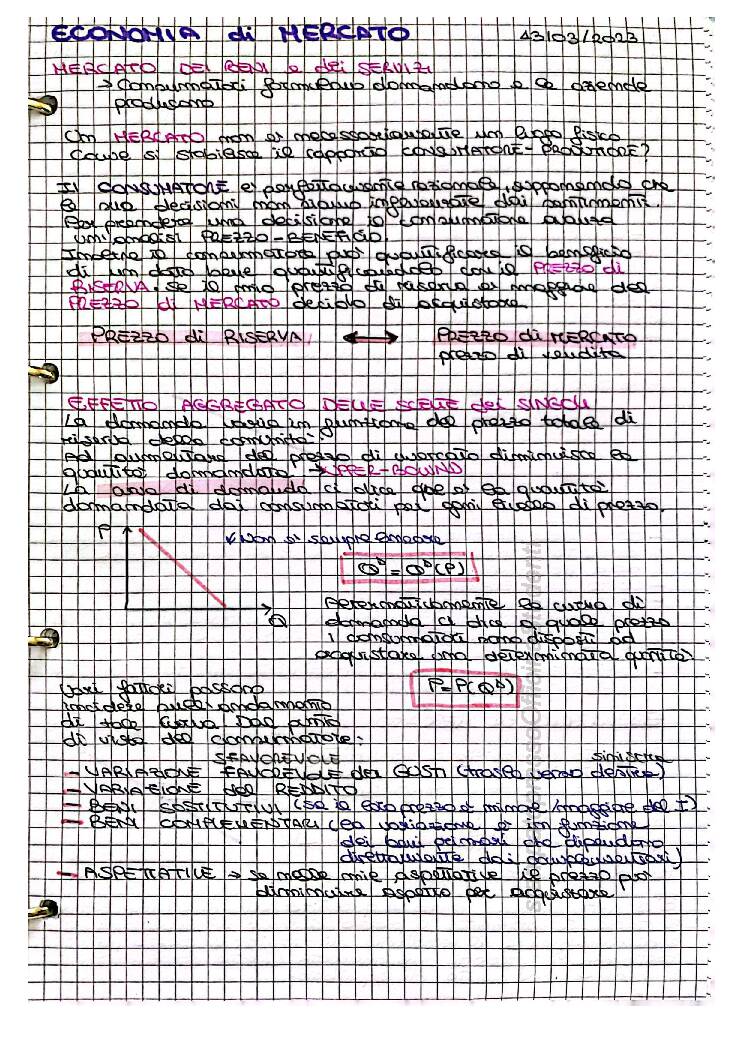 ECONOMIA di MERCATO 13/03/2023
MERCATO DEI BENI e dei SERVIZI
→ Consumatori domandano e le aziende
producono
Un MERCATO non è necessariamente un luogo fisico
Come si stabilisce il rapporto CONSUMATORE-PRODUTTORE?
Il CONSUMATORE è perfettamente razionale, supponendo che
le sue decisioni non siano influenzate dai sentimenti.
Per prendere una decisione il consumatore avanza
un'analisi PREZZO-BENEFICIO.
Inoltre il consumatore può quantificare il beneficio
di un dato bene quantificandolo con il PREZZO di
RISERVA. Se il mio prezzo di riserva è maggiore del
PREZZO di MERCATO decido di acquistare
PREZZO di RISERVA ↔ PREZZO di MERCATO
prezzo di vendita
EFFETTO AGGREGATO DELLE SCELTE dei SINGOLI
La domanda varia in funzione del prezzo totale di
riserva della comunità.
Ad aumentare del prezzo di mercato diminuisce la
quantità domandata → UPPER-BOUND
La curva di domanda ci dice qual è la quantità
domandata dai consumatori per ogni livello di prezzo.
P
↙ Non è sempre lineare
Qᴰ = Qᴰ(P)
Q
Alternativamente la curva di
domanda ci dice a quale prezzo
i consumatori sono disposti ad
acquistare una determinata quantità
P = P(Qᴰ)
Vari fattori possono
incidere sull'andamento
di tale curva Dal punto
di vista del consumatore:
SFAVOREVOLE sinistra
- VARIAZIONE FAVOREVOLE dei GUSTI (trasla verso destra)
- VARIAZIONE del REDDITO
- BENI SOSTITUTIVI (se il loro prezzo è minore/maggiore del I)
- BENI COMPLEMENTARI (la variazione è in funzione
dei beni primari che dipendono
direttamente dai complementari)
- ASPETTATIVE → se nelle mie aspettative il prezzo può
diminuire aspetto per acquistare